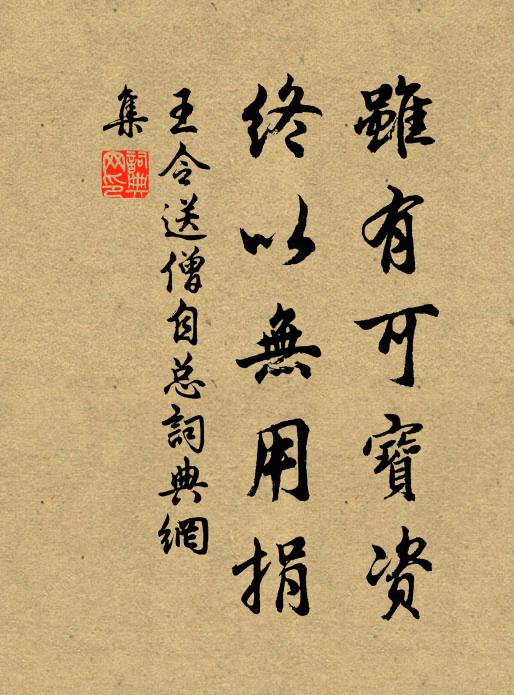 雖有可寶资
終以無用捐
王令送僧自总詞典網
集
詞典網印